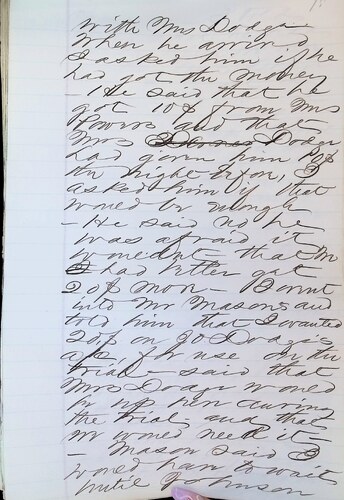 with Mrs Dodge
When he arrived
I asked him if he
had got the money
- He said that he
got 10$ from Mrs
Powers and that
Mrs Dodge
had given him 20$
the night before, I
asked him if that
would be enough
- He said no he
was afraid it
wouldnt - that
I had better get
20$ more - I went
into Mr Masons and
told him that I wanted
20$ on JO Dodge's
a/c, for use on the
trial - said that
Mrs Dodge would
be up here during
the trial, and that
we would need it -
- Mason said I
would have to wait
until Johnson